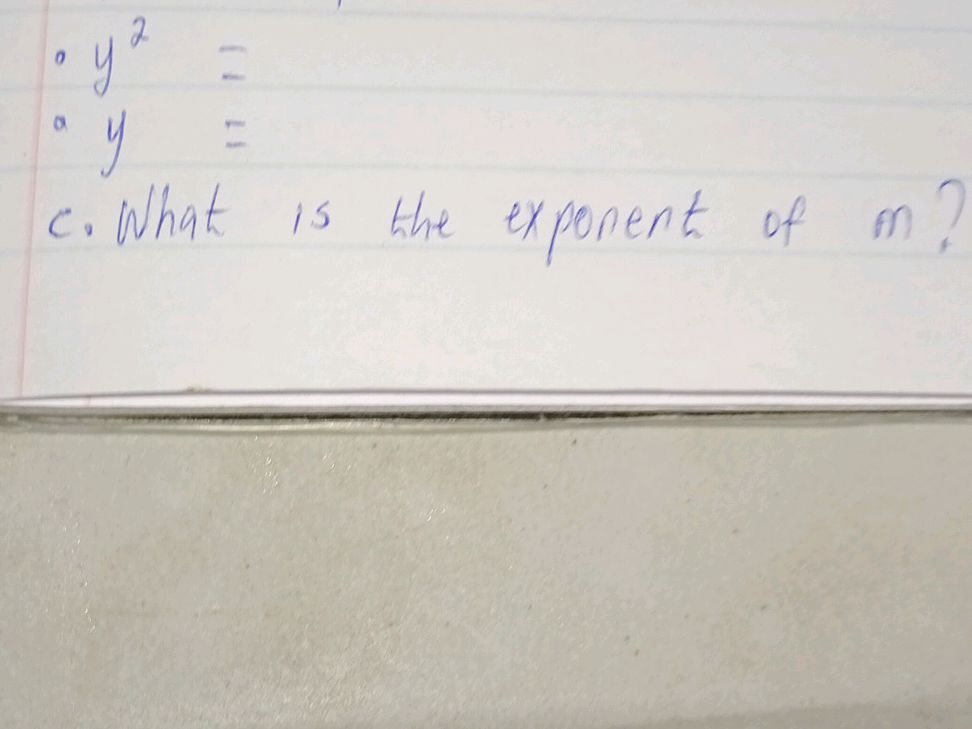 • y² =
• y =
c. What is the exponent of m?